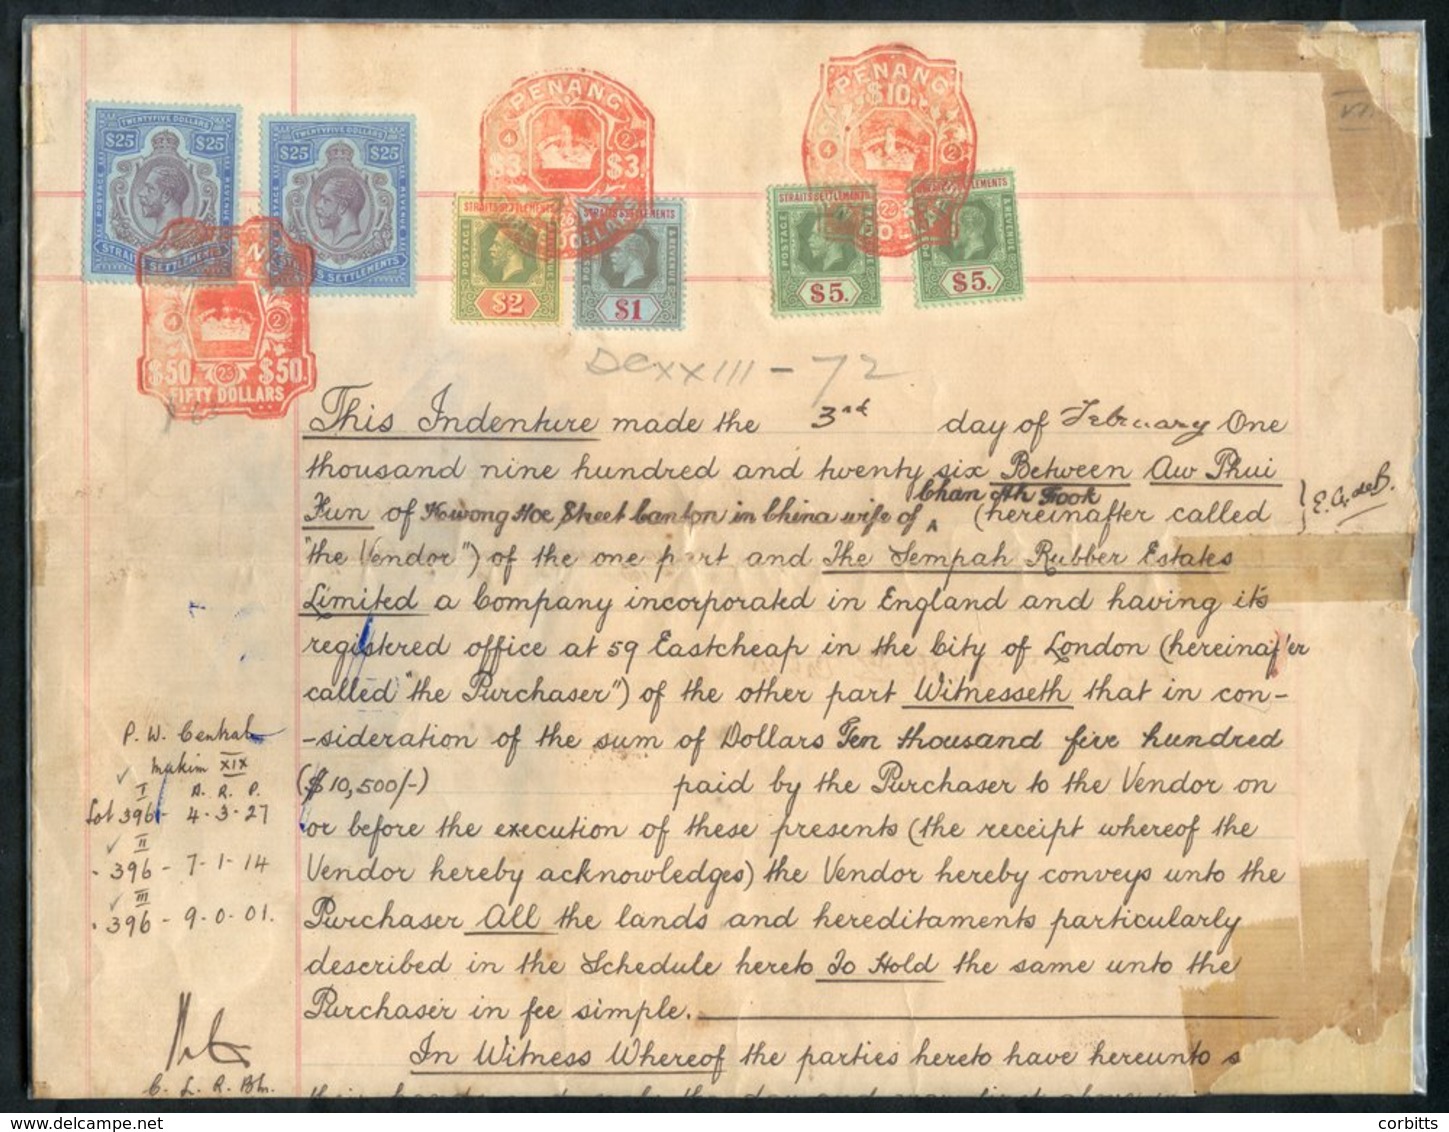 TWENTYFIVE DOLLARS
$25 $25
POSTAGE REVENUE
STRAITS SETTLEMENTS
TWENTYFIVE DOLLARS
$25 $25
POSTAGE REVENUE
SETTLEMENTS
PENANG
4 2
$3. $3.
PENANG
$10.
4 2
STRAITS SETTLEMENTS
POSTAGE
$2
STRAITS SETTLEMENTS
POSTAGE & REVENUE
$1
STRAITS SETTLEMENTS
POSTAGE
$5.
SETTLEMENTS
& REVENUE
$5.
4 2
$50. 26 $50.
FIFTY DOLLARS
DCXXIII - 72
This Indenture made the 3rd day of February One
thousand nine hundred and twenty six Between Aw Phui
Chan Ah Fook
Fun of Kwong Hoe Street Canton in China wife of ^ (hereinafter called
"the Vendor") of the one part and The Sempah Rubber Estates
Limited a Company incorporated in England and having its
registered office at 59 Eastcheap in the City of London (hereinafter
called "the Purchaser") of the other part Witnesseth that in con-
-sideration of the sum of Dollars Ten thousand five hundred
($10,500/-) paid by the Purchaser to the Vendor on
or before the execution of these presents (the receipt whereof the
Vendor hereby acknowledges) the Vendor hereby conveys unto the
Purchaser All the lands and hereditaments particularly
described in the Schedule hereto To Hold the same unto the
Purchaser in fee simple.
In Witness Whereof the parties hereto have hereunto s
P. W. Central
Mukim XIX
I A. R. P.
Lot 396 - 4-3-27
II
" 396 - 7-1-14
III
" 396 - 9-0-01.
C. L. R. Bm.
delcampe.net corbitts